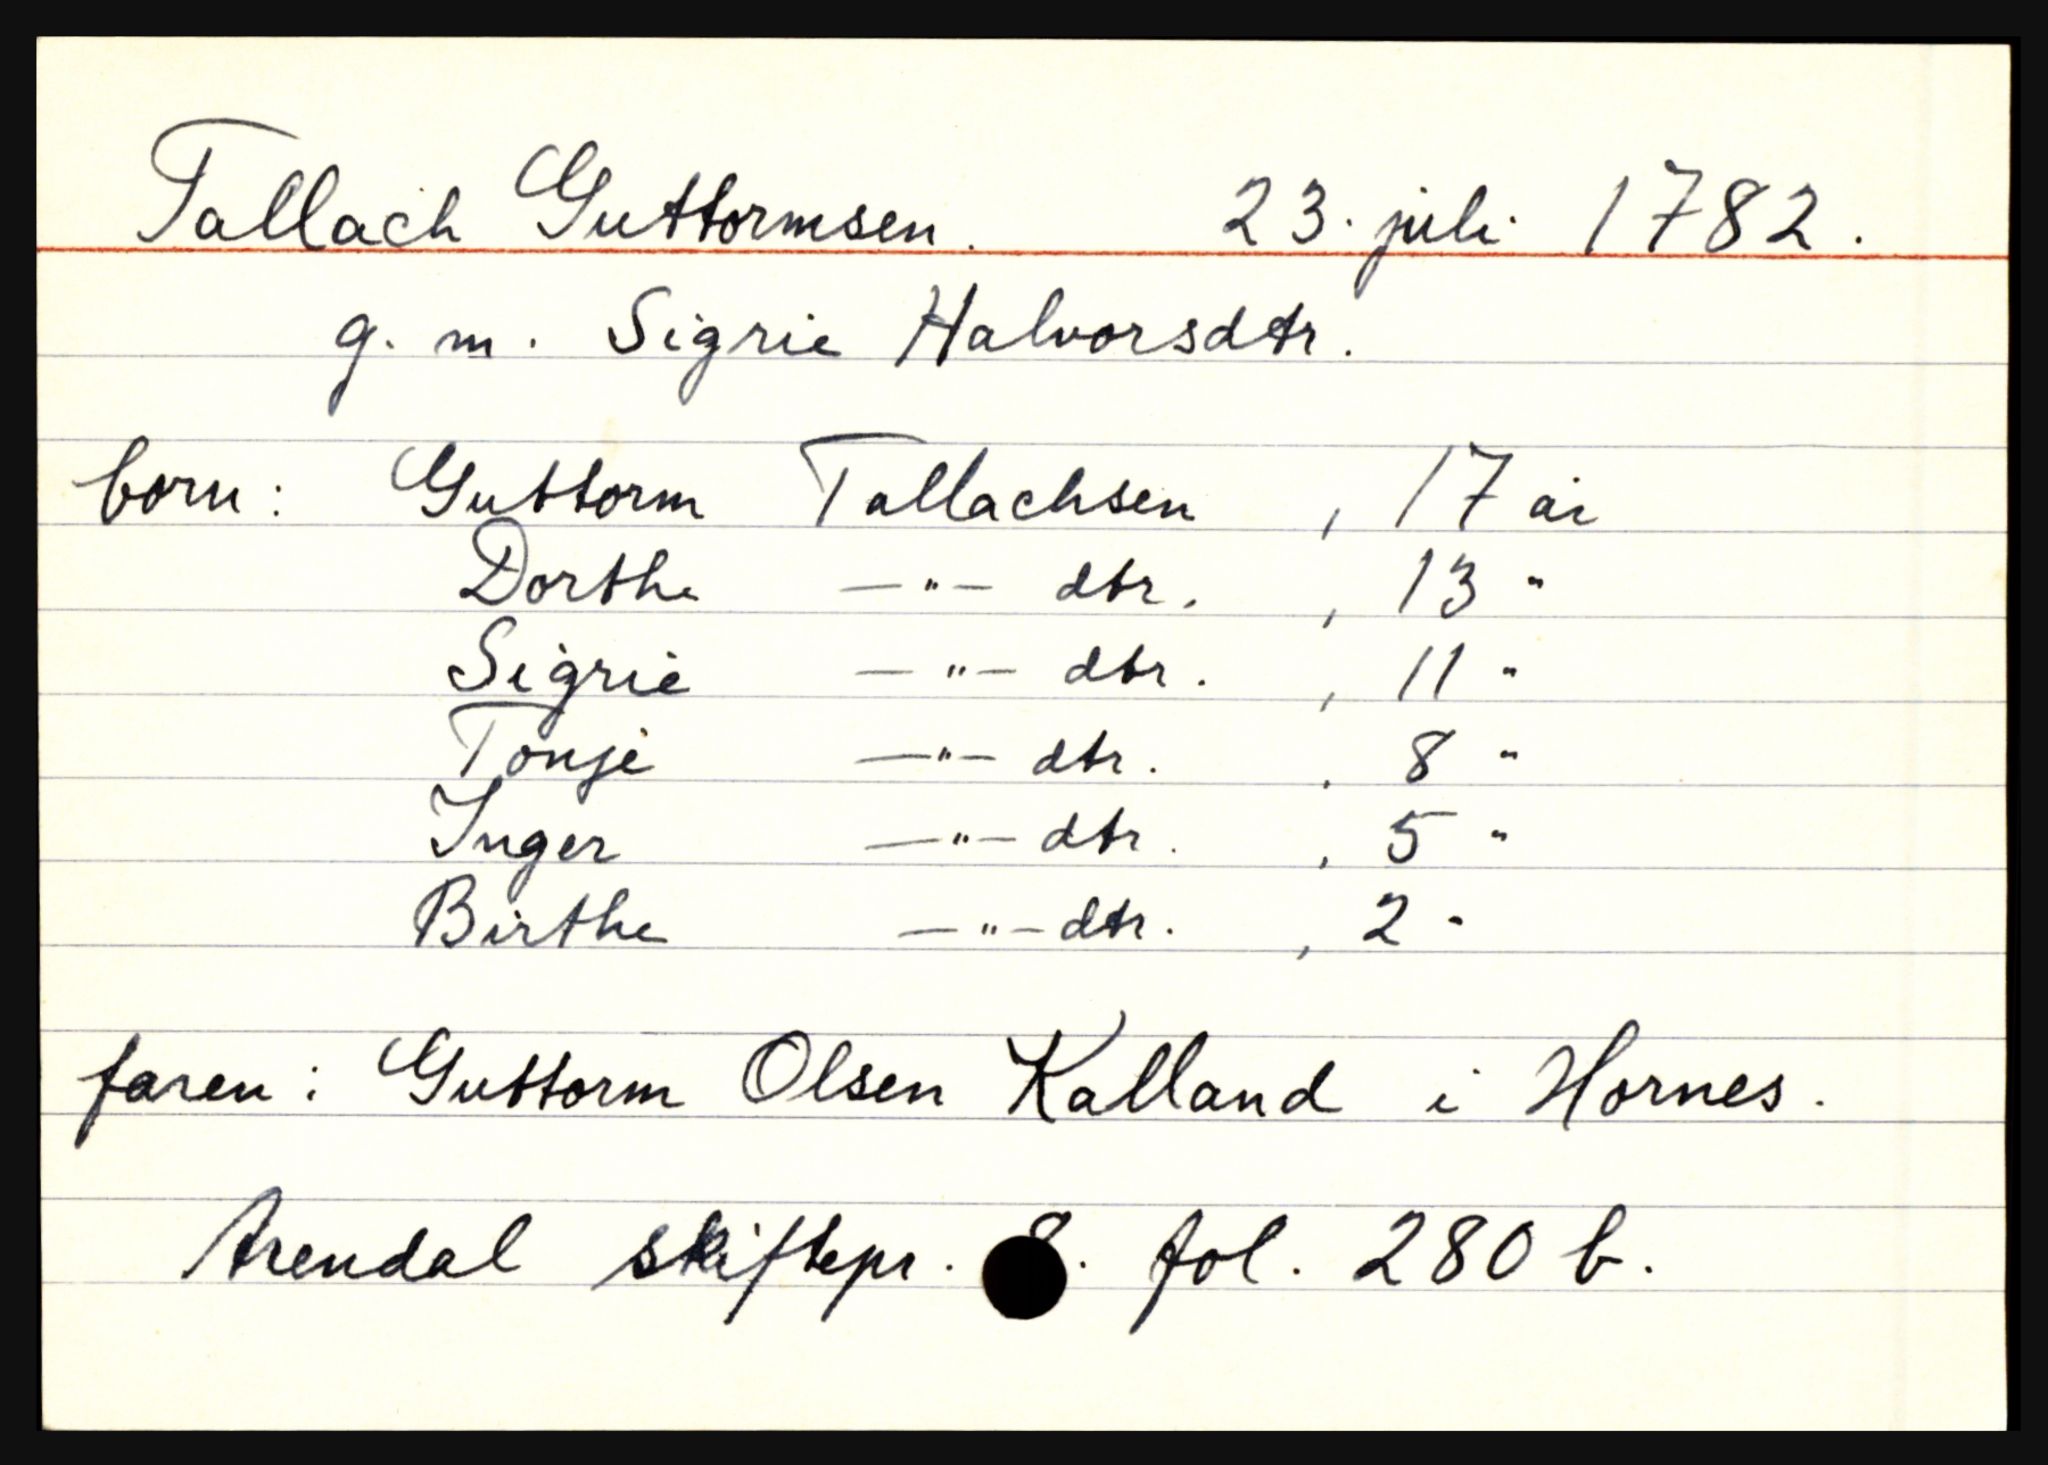 Tallach Guttormsen. 23. juli 1782.
g. m. Sigrie Halvorsdtr.
born: Guttorm Tallachsen , 17 år
Dorthe —"— dtr. , 13 "
Sigrie —"— dtr. , 11 "
Tonje —"— dtr. , 8 "
Inger —"— dtr. , 5 "
Birthe —"— dtr. , 2 "
faren: Guttorm Olsen Kalland i Hornes.
Arendal skiftepr. 8. fol. 280 b.